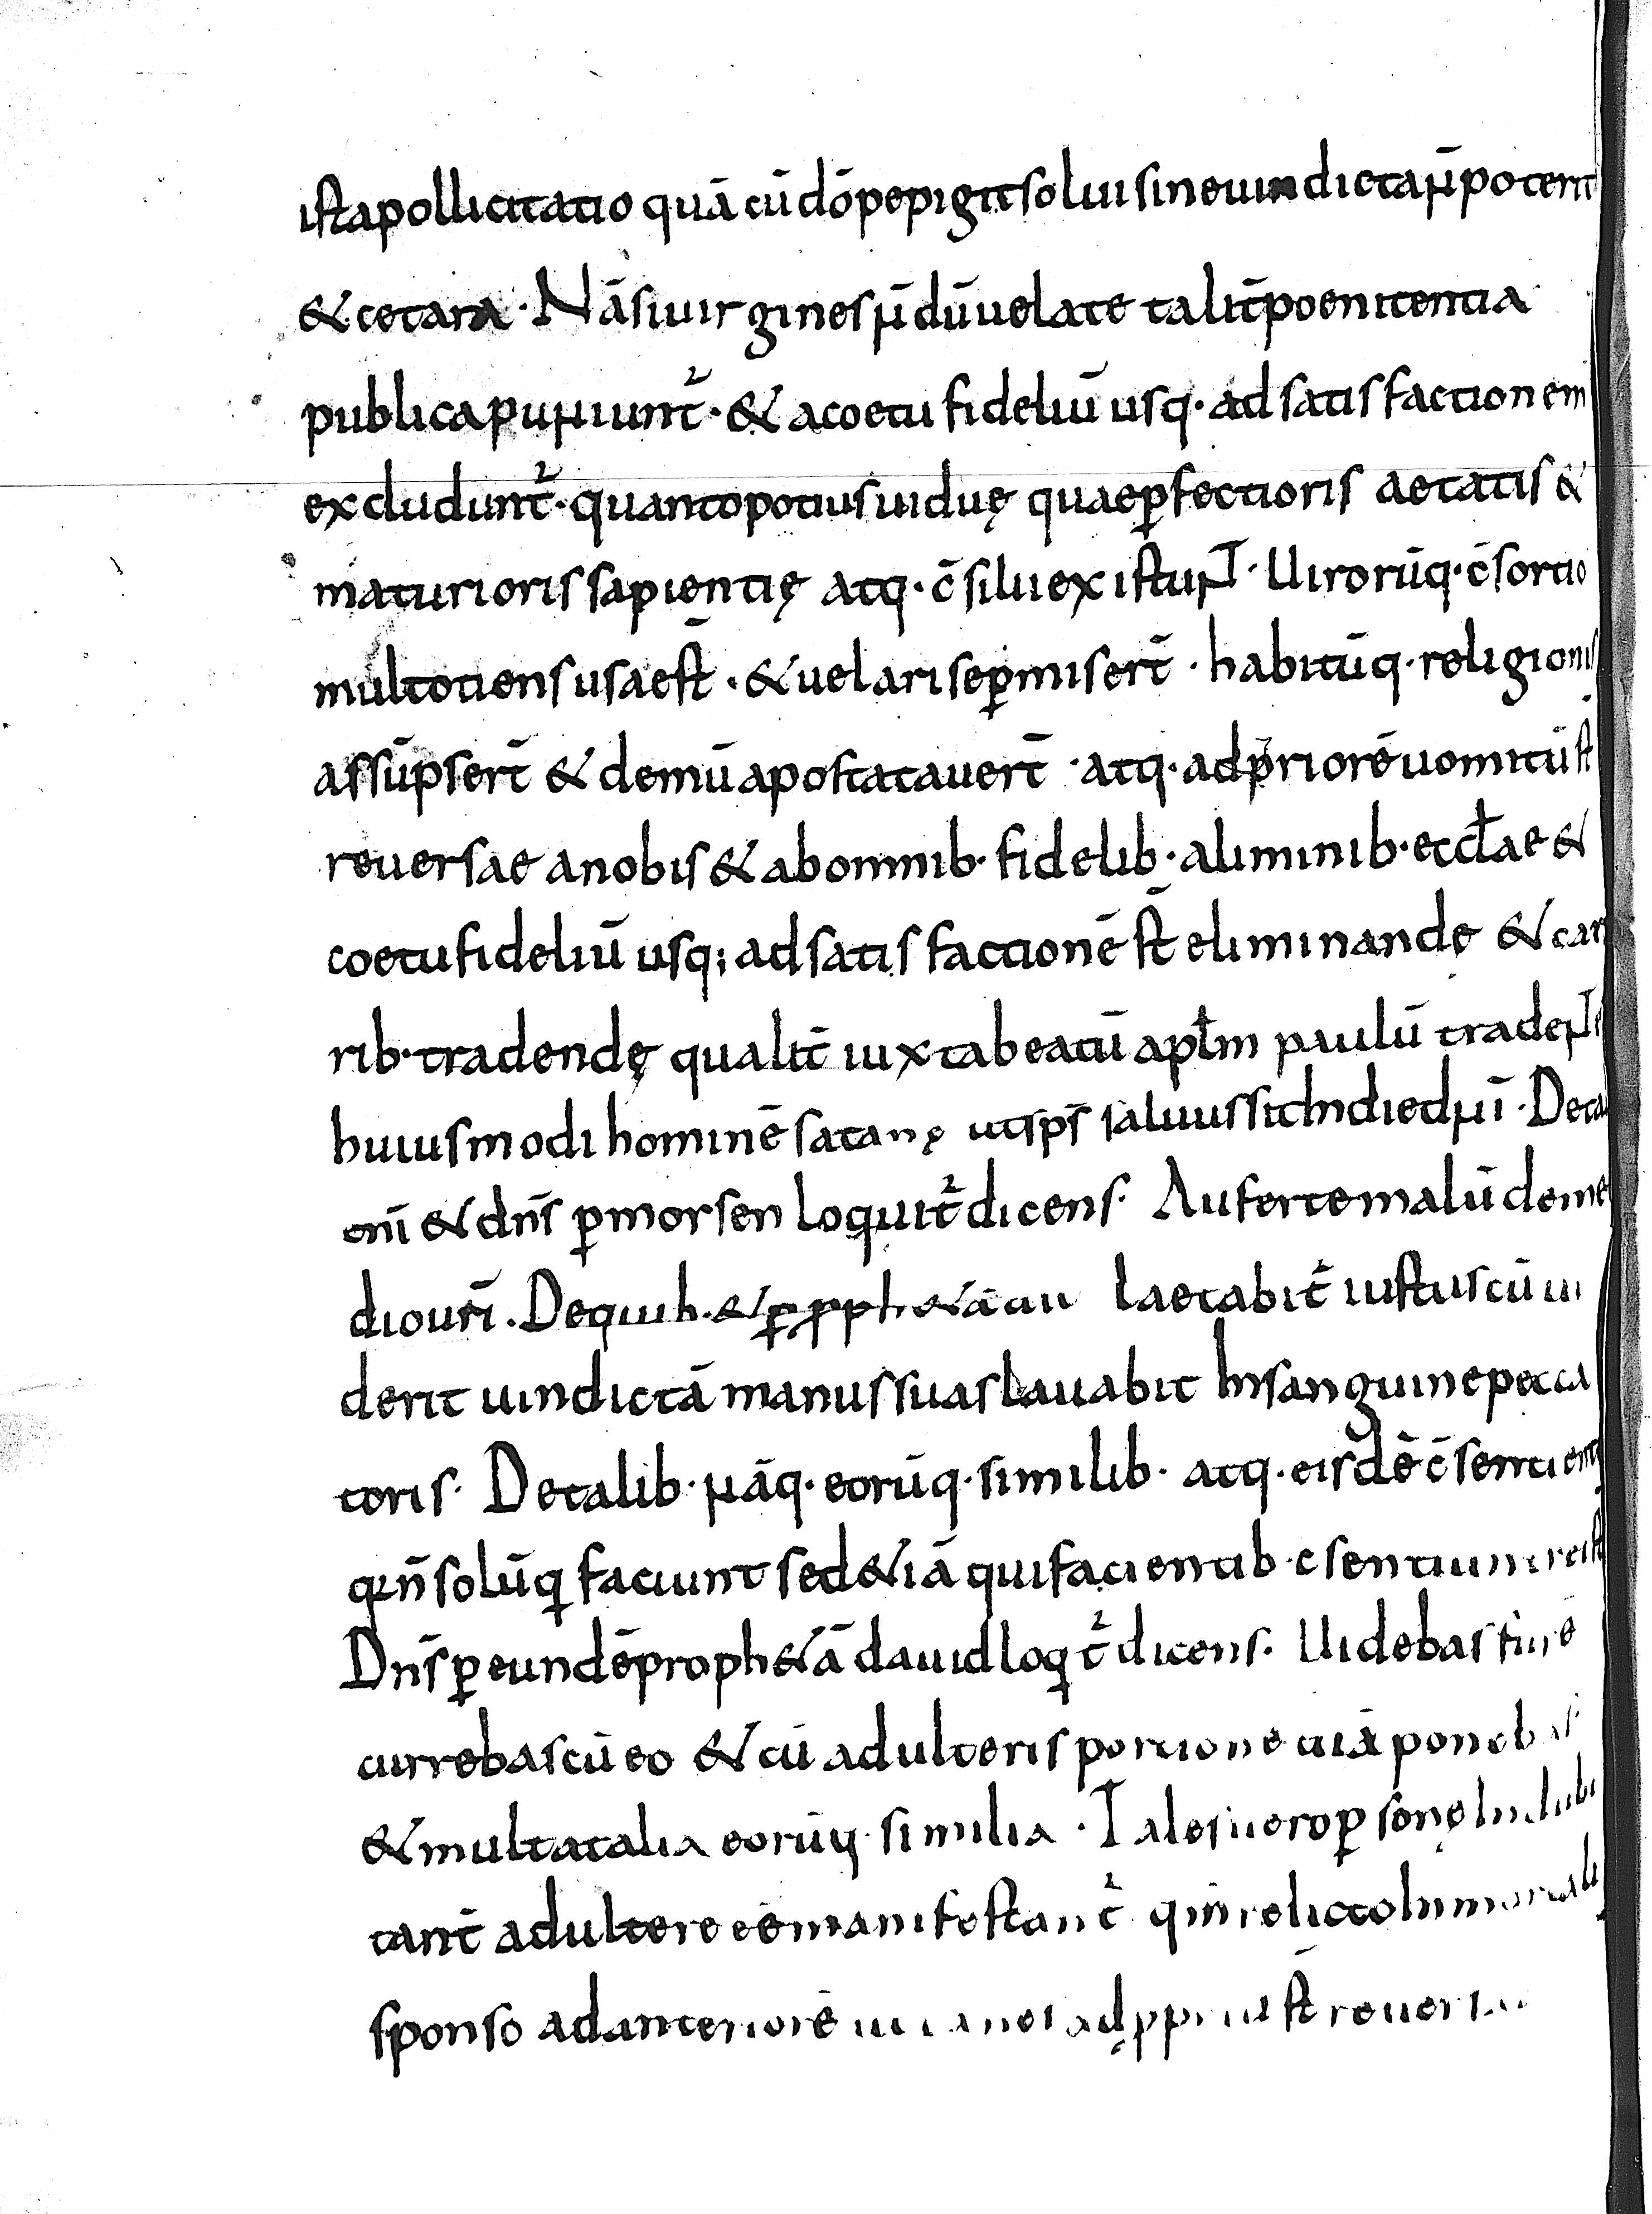 ista pollicitatio quā cū dō pepigit solui sine uindicta n̄ poterit
& cetara · Nā si uirgines n̄dū uelate talit̄ poenitentia
publica puniunt̄ · & a coetu fideliū usq· ad satisfactionem
excludunt̄ · quanto potius uiduę quae ꝑfectioris aetatis &
maturioris sapientię atq· c̄silii existunt · Uirorūq· c̄sortio
multotiens usae st̄ · & uelari se ꝑmisert̄ · habitūq· religionis
assūpsert̄ & demū apostatauert̄ · atq· ad priorē uomitū st̄
reuersae a nobis & ab omnib· fidelib· a liminib· eccłae &
coetu fideliū usq; ad satisfactionē st̄ eliminandę & car
rib· tradendę qualit̄ iuxta beatū apłm paulū tradere
huiusmodi hominē satanę ut sp̄s saluus sit In die dn̄i · De ta
oni & dn̄s ꝑ morsen loquit̄ dicens · Auferte malū de me
dio ur̄i . De quib· & ꝑ proph&ā laetabit̄ iustus cū ui
derit uindictā manus suas lauabit In sanguine pecca
toris · De talib· nāq· eorūq· similib· atq· eisdē c̄sentient
qui n̄ solū qui faciunt sed &iā qui facientib· c̄sentiunt rei st̄
Dn̄s ꝑ eundē proph&ā dauid loqt̄ dicens · Uidebas furē
currebas cū eo & cū adulteris portionē tuā ponebas
& multa talia eorūq· similia · Tales uero ꝑsonę In dubi
tant̄ adultere eē manifestant̄ qui relicto Inmortali
sponso ad anteriorē st̄ reuersae